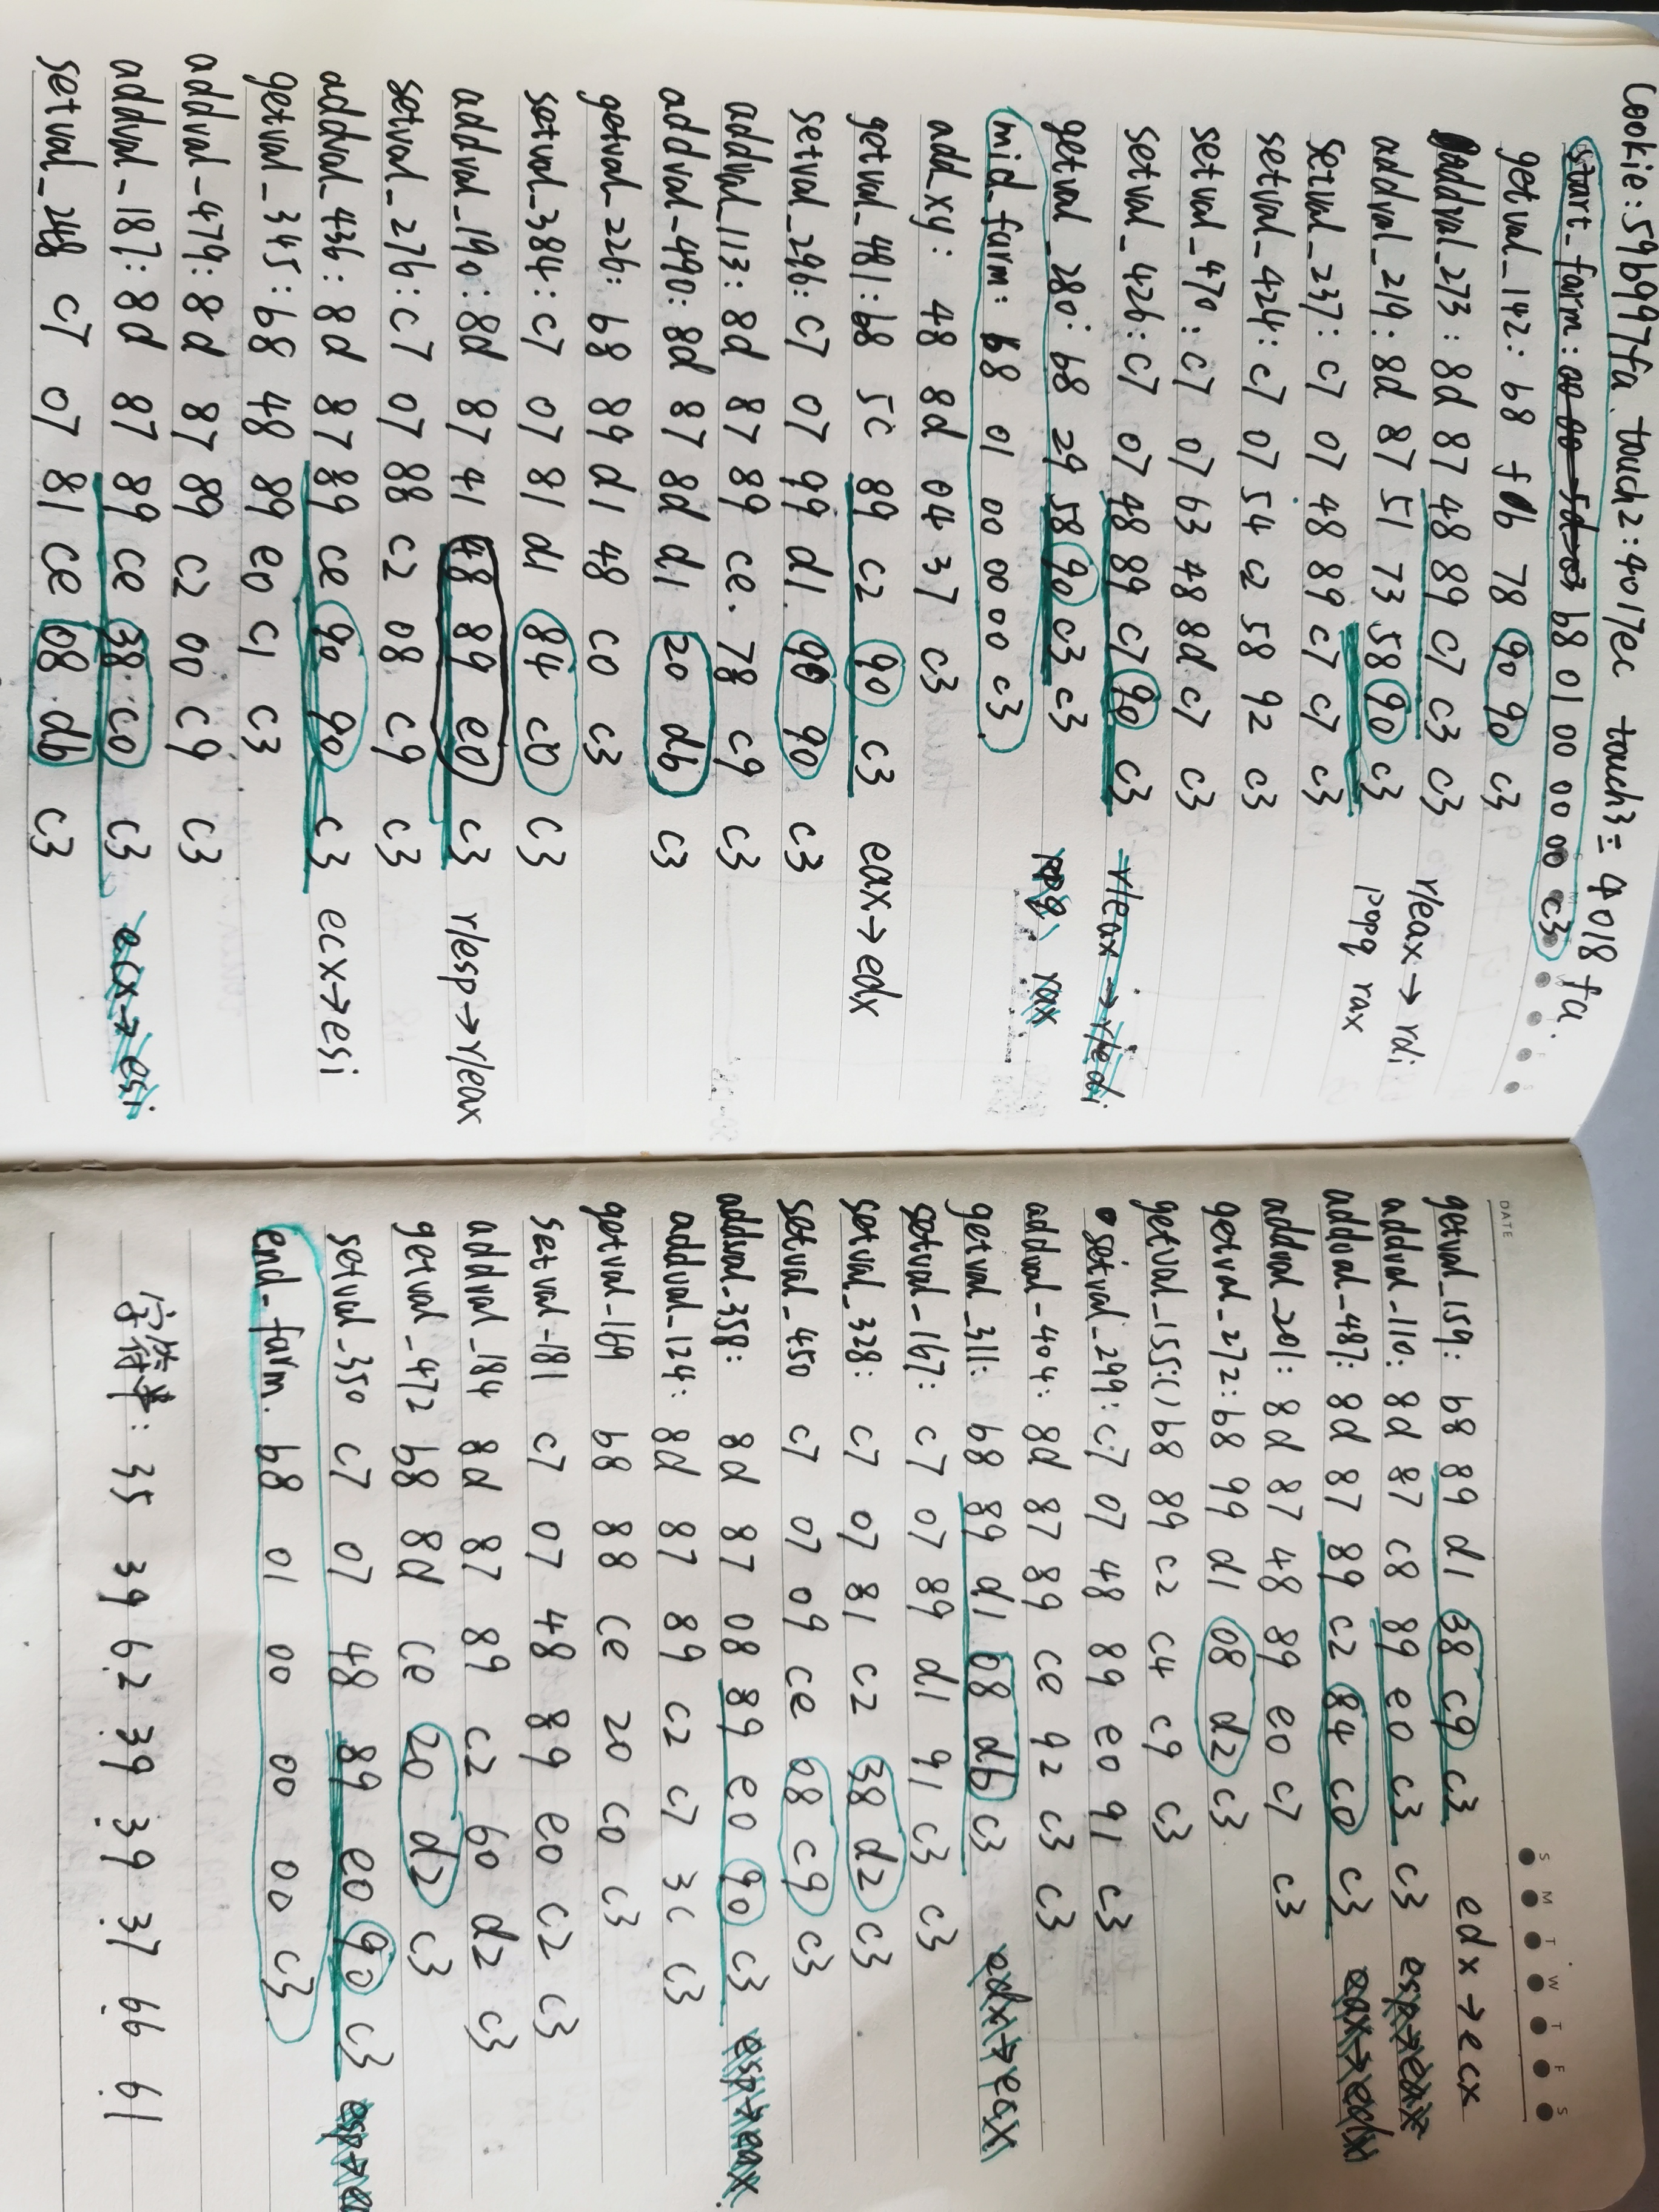 Cookie: 59b997fa touch2: 4017ec touch3: 4018fa.
start_farm: 00 00 5d c3 b8 01 00 00 00 c3
getval_142: b8 fb 78 90 90 c3
addval_273: 8d 87 48 89 c7 c3 c3 r/eax→rdi
addval_219: 8d 87 51 73 58 90 c3 popq rax
setval_237: c7 07 48 89 c7 c7 c3
setval_424: c7 07 54 c2 58 92 c3
setval_470: c7 07 63 48 8d c7 c3
setval_426: c7 07 48 89 c7 90 c3 r/eax→r/edi
getval_280: b8 29 58 90 c3 c3 rax
mid_farm: b8 01 00 00 00 c3.
add_xy: 48 8d 04 37 c3
getval_481: b8 5c 89 c2 90 c3 eax→edx
setval_296: c7 07 99 d1 90 90 c3
addval_113: 8d 87 89 ce. 78 c9 c3
addval_490: 8d 87 8d d1 20 db c3
getval_226: b8 89 d1 48 c0 c3
setval_384: c7 07 81 d1 84 c0 c3
addval_190: 8d 87 41 48 89 e0 c3 r/esp→r/eax
setval_276: c7 07 88 c2 08 c9 c3
addval_436: 8d 87 89 ce 90 90 c3 ecx→esi
getval_345: b8 48 89 e0 c1 c3
addval_479: 8d 87 89 c2 00 c9 c3
addval_187: 8d 87 89 ce 38 c0 c3 ecx→esi
setval_248 c7 07 81 ce 08 db c3
DATE
S M T W T F S
getval_159: b8 89 d1 38 c9 c3 edx→ecx
addval_110: 8d 87 c8 89 e0 c3 c3 esp→eax
addval_487: 8d 87 89 c2 84 c0 c3 eax→edx
addval_201: 8d 87 48 89 e0 c7 c3
getval_272: b8 99 d1 08 d2 c3
getval_155:() b8 89 c2 c4 c9 c3
setval_299: c7 07 48 89 e0 91 c3
addval_404: 8d 87 89 ce 92 c3 c3
getval_311: b8 89 d1 08 db c3 edx→ecx
setval_167: c7 07 89 d1 91 c3 c3
setval_328: c7 07 81 c2 38 d2 c3
setval_450 c7 07 09 ce 08 c9 c3
addval_358: 8d 87 08 89 e0 90 c3 esp→eax
addval_124: 8d 87 89 c2 c7 3c c3
getval_169 b8 88 ce 20 c0 c3
setval_181 c7 07 48 89 e0 c2 c3
addval_184 8d 87 89 c2 60 d2 c3
getval_472 b8 8d ce 20 d2 c3
setval_350 c7 07 48 89 e0 90 c3 esp→
end_farm. b8 01 00 00 00 c3
字符串: 35 39 62 39 39 37 66 61